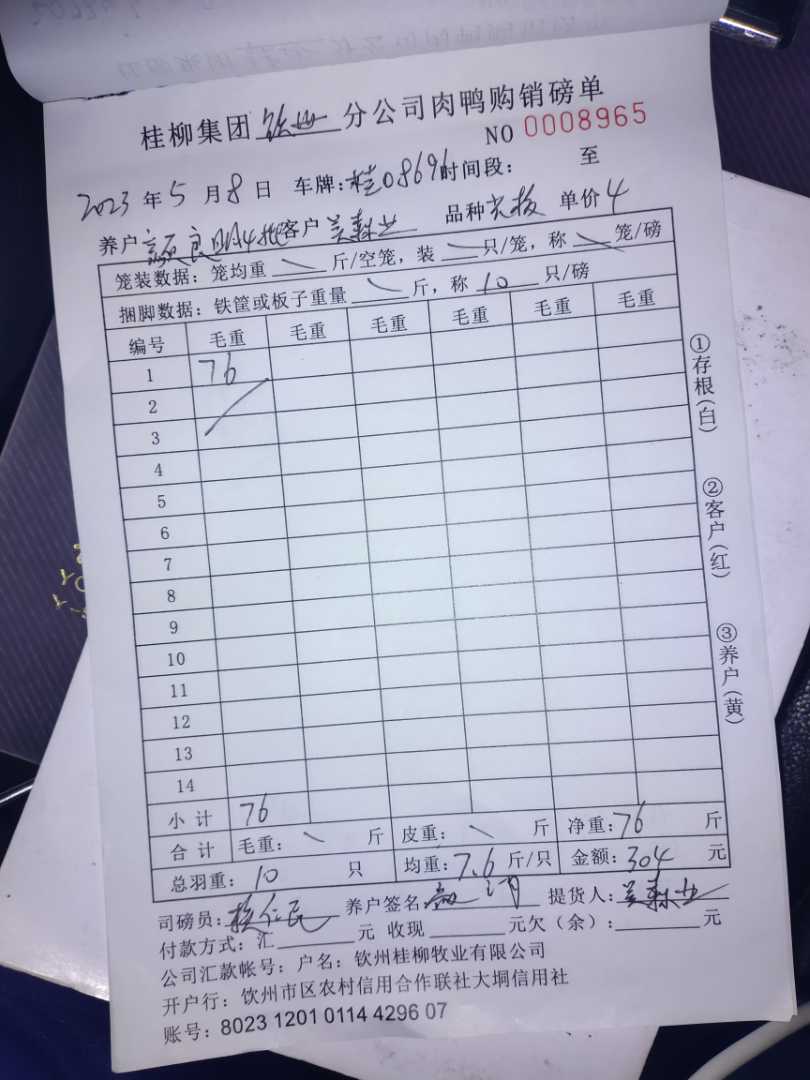 桂柳集团 钦州 分公司肉鸭购销磅单
NO 0008965
2023 年 5 月 8 日 车牌:桂0869 时间段: 至
养户 良明4批 客户 吴 品种 单价 4
笼装数据: 笼均重 斤/空笼, 装 只/笼, 称 笼/磅
捆脚数据: 铁筐或板子重量 斤, 称 10 只/磅
编号 毛重 毛重 毛重 毛重 毛重 毛重
1 76
2
3
4
5
6
7
8
9
10
11
12
13
14
小计 76
合计 毛重: 斤 皮重: 斤 净重: 76 斤
总羽重: 10 只 均重: 7.6 斤/只 金额: 304 元
司磅员: 养户签名: 提货人: 吴
付款方式: 汇 元 收现 元欠(余): 元
公司汇款帐号: 户名: 钦州桂柳牧业有限公司
开户行: 钦州市区农村信用合作联社大垌信用社
账号: 8023 1201 0114 4296 07
①存根(白)
②客户(红)
③养户(黄)